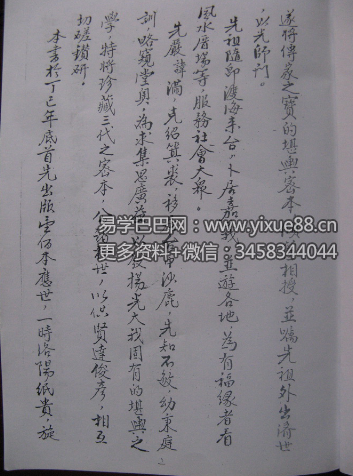 遂將傳家之寶的堪輿密本 相授，並囑先祖外出濟世
，以光師門。
先祖隨即渡海來台，卜居嘉義。並遊各地，為有福緣者看
風水厝場等，服務社會大眾。
先嚴諱滿，克紹箕裘，移 中沙鹿，先知不敏幼秉庭
訓，略窺堂奧。為求集思廣益 發揚光大我固有的堪輿之
學，特將珍藏三代之密本，公諸於世，以供賢達俊彥，相互
切磋鑽研。
本書於丁巳年底首先出版壹佰本應世，一時洛陽紙貴，旋
2
易学巴巴网：www.yixue88.cn
更多资料+微信：3458344044